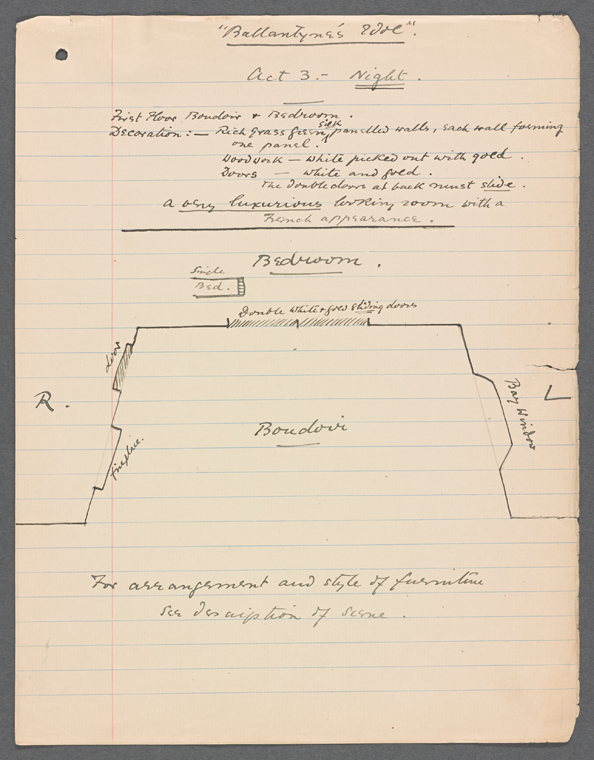 "Ballantyne's Idol".
Act 3:- Night.
First Floor Boudoir & Bedroom.
Decoration:— Rich grass green silk panelled walls, each wall forming
one panel.
Woodwork — white picked out with gold.
Doors — white and gold.
The double doors at back must slide.
A very luxurious looking room with a
French appearance.
Bedroom.
Single
Bed.
Double white & gold sliding doors
door
R.
L
Bay Window
Boudoir
Fireplace.
For arrangement and style of furniture
see description of scene.